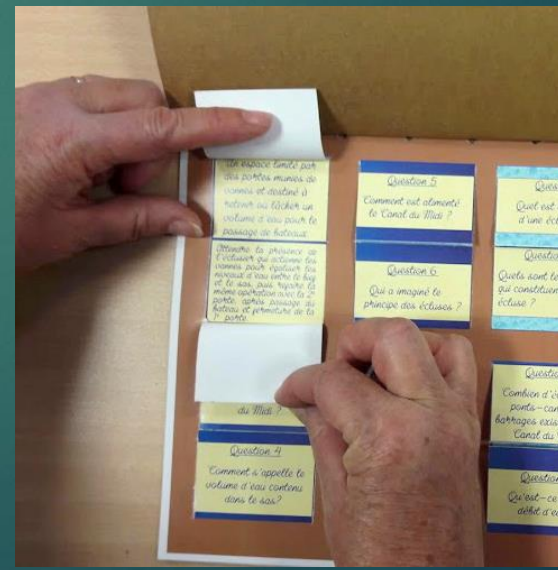 Un espace limité par
des portes munies de
vannes et destiné à
retenir ou lâcher un
volume d'eau pour le
passage de bateaux.
Attendre la présence de
l'éclusier qui actionne les
vannes pour égaliser les
niveaux d'eau entre le bief
et le sas, puis refaire la
même opération avec la 2e
porte, après passage du
bateau et fermeture de la
1e porte.
du Midi ?
Question 4
Comment s'appelle le
volume d'eau contenu
dans le sas?
Question 5
Comment est alimenté
le Canal du Midi ?
Question 6
Qui a imaginé le
principe des écluses ?
Quel est
d'une
Quels sont
qui constituent
écluse ?
Combien
barrages
Canal du
Question
Qu'est-ce
débit